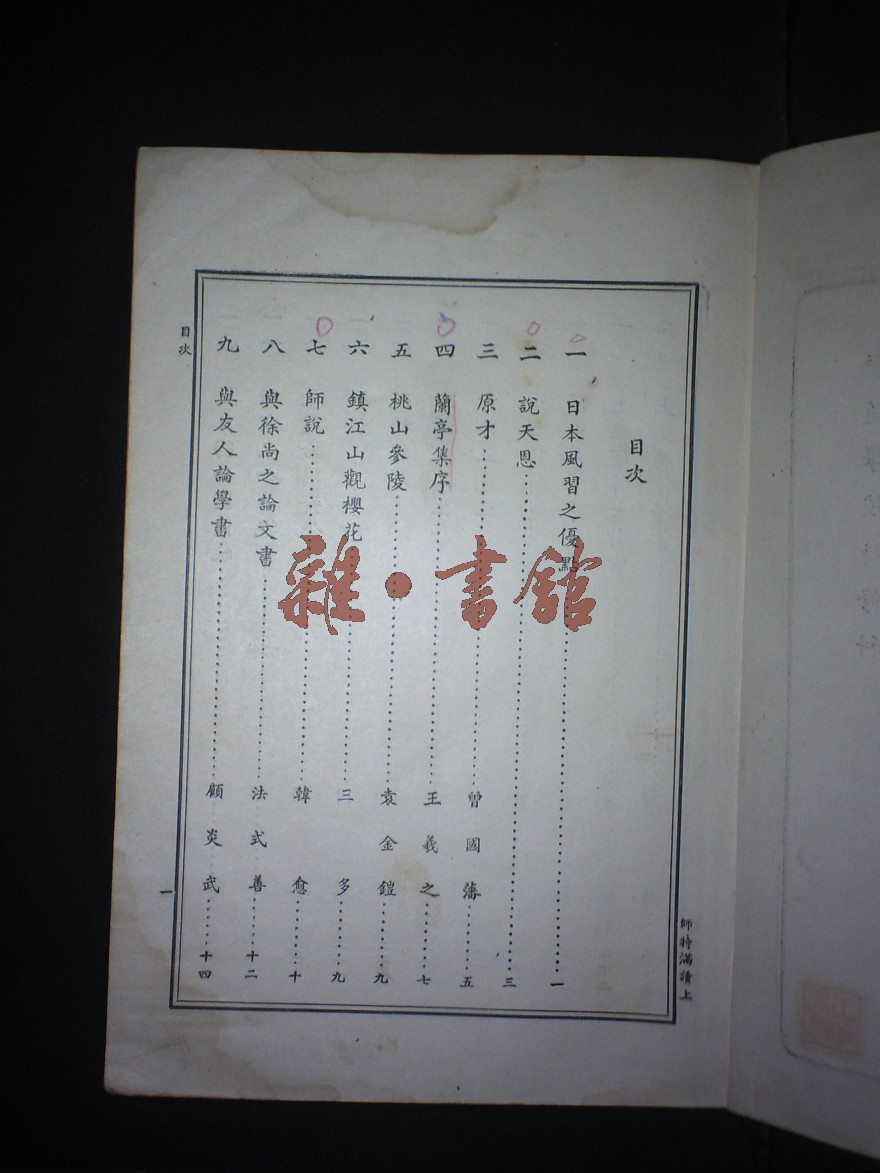 目次
一 日本風習之優點……一
二 說天恩……三
三 原才……曾國藩……五
四 蘭亭集序……王羲之……七
五 桃山參陵……袁金鎧……九
六 鎮江山觀櫻花……三多……九
七 師說……韓愈……十
八 與徐尚之論文書……法式善……十二
九 與友人論學書……顧炎武……十四
目次
一
師特滿讀上
雜·書館